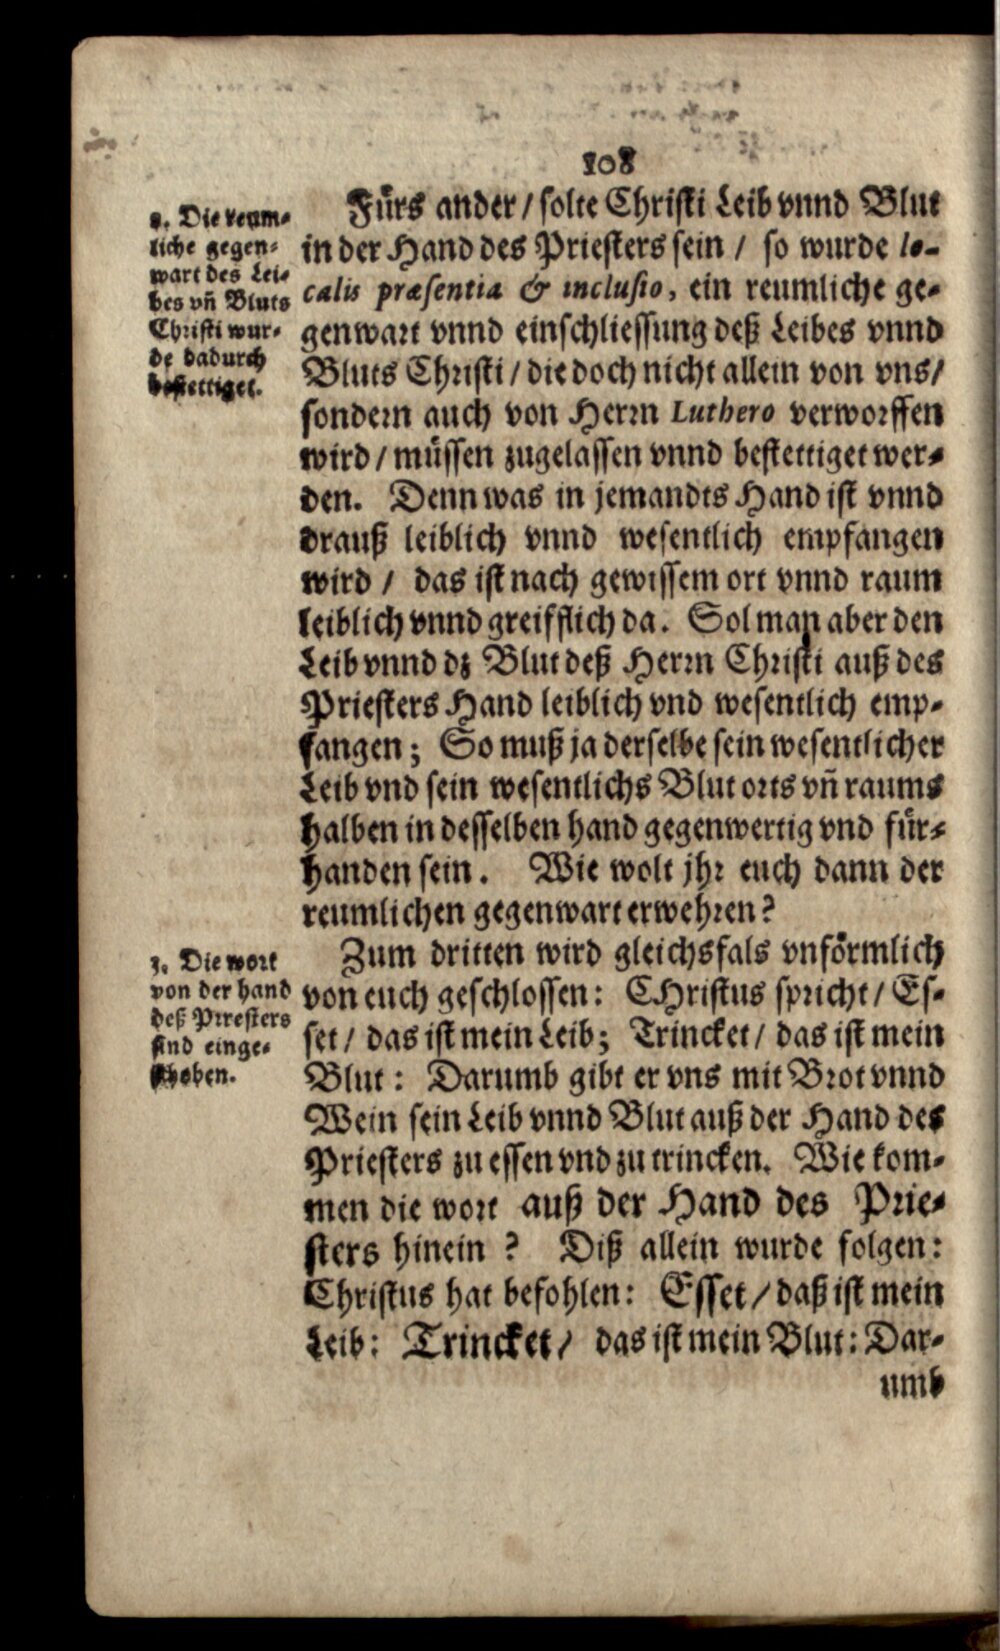 108
2. Die reum-
liche gegen-
wart des Lei-
bes vñ Bluts
Christi wur-
de dadurch
bestettiget.
Fürs ander / solte Christi Leib vnnd Blut
in der Hand des Priesters sein / so wurde lo-
calis præsentia & inclusio, ein reumliche ge-
genwart vnnd einschliessung deß Leibes vnnd
Bluts Christi / die doch nicht allein von vns /
sondern auch von Herrn Luthero verworffen
wird / müssen zugelassen vnnd bestettiget wer-
den. Denn was in jemandts Hand ist vnnd
drauß leiblich vnnd wesentlich empfangen
wird / das ist nach gewissem ort vnnd raum
leiblich vnnd greifflich da. Sol man aber den
Leib vnnd dz Blut deß Herrn Christi auß des
Priesters Hand leiblich vnd wesentlich emp-
fangen; So muß ja derselbe sein wesentlicher
Leib vnd sein wesentlichs Blut orts vñ raums
halben in desselben hand gegenwertig vnd für-
handen sein. Wie wolt jhr euch dann der
reumlichen gegenwart erwehren?
3. Die wort
von der hand
deß Priesters
sind einge-
schoben.
Zum dritten wird gleichsfals vnförmlich
von euch geschlossen: CHristus spricht / Es-
set / das ist mein Leib; Trincket / das ist mein
Blut: Darumb gibt er vns mit Brot vnnd
Wein sein Leib vnnd Blut auß der Hand des
Priesters zu essen vnd zu trincken. Wie kom-
men die wort auß der Hand des Prie-
sters hinein? Diß allein wurde folgen:
Christus hat befohlen: Esset / daß ist mein
Leib: Trincket / das ist mein Blut: Dar-
umb